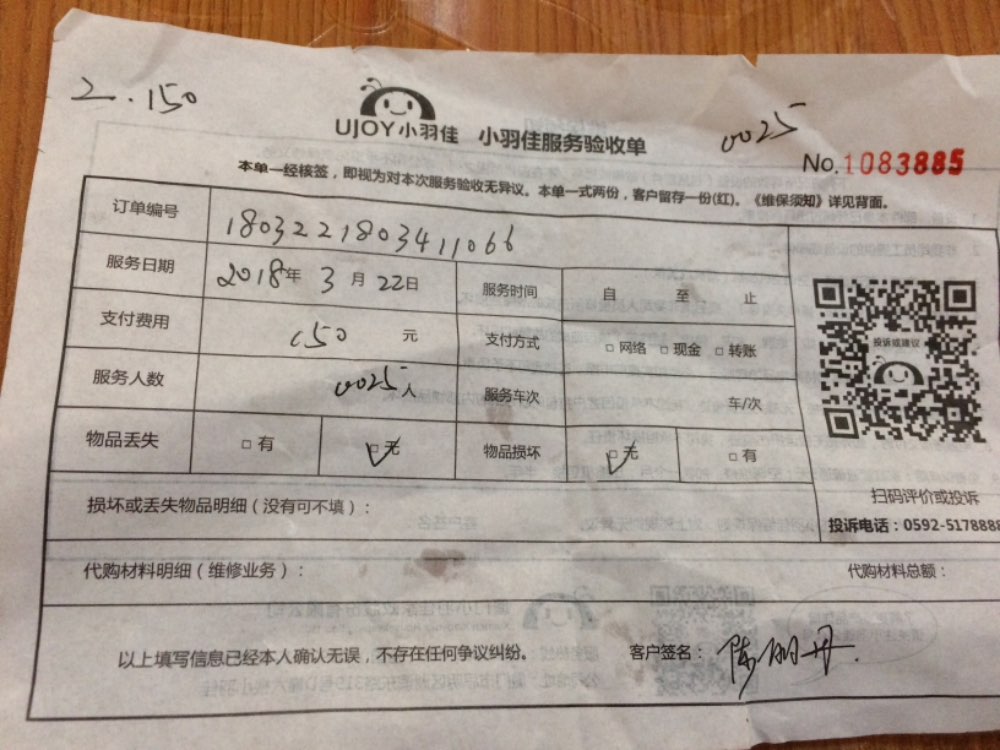 2.150
UJOY小羽佳 小羽佳服务验收单
0025
No.1083885
本单一经核签，即视为对本次服务验收无异议。本单一式两份，客户留存一份(红)。《维保须知》详见背面。
订单编号 1803221803411066
服务日期 2018年 3月 22日 服务时间 自 至 止
支付费用 150 元 支付方式 □ 网络 □ 现金 □ 转账
服务人数 0025人 服务车次 车/次
物品丢失 □ 有 □ 无 物品损坏 □ 无 □ 有
投诉或建议
扫码评价或投诉
投诉电话：0592-5178888
损坏或丢失物品明细（没有可不填）：
代购材料明细（维修业务）： 代购材料总额：
以上填写信息已经本人确认无误，不存在任何争议纠纷。 客户签名：